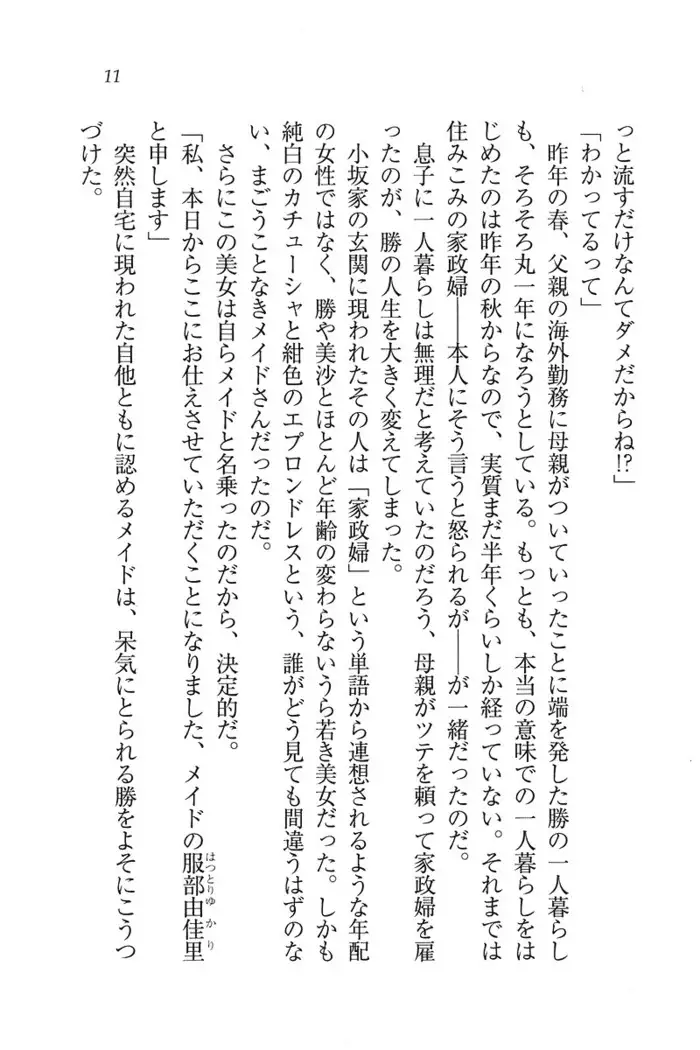 11
っと流すだけなんてダメだからね!?」
「わかってるって」
　昨年の春、父親の海外勤務に母親がついていったことに端を発した勝の一人暮らし
も、そろそろ丸一年になろうとしている。もっとも、本当の意味での一人暮らしをは
じめたのは昨年の秋からなので、実質まだ半年くらいしか経っていない。それまでは
住みこみの家政婦――本人にそう言うと怒られるが――が一緒だったのだ。
　息子に一人暮らしは無理だと考えていたのだろう、母親がツテを頼って家政婦を雇
ったのが、勝の人生を大きく変えてしまった。
　小坂家の玄関に現われたその人は「家政婦」という単語から連想されるような年配
の女性ではなく、勝や美沙とほとんど年齢の変わらないうら若き美女だった。しかも
純白のカチューシャと紺色のエプロンドレスという、誰がどう見ても間違うはずのな
い、まごうことなきメイドさんだったのだ。
　さらにこの美女は自らメイドと名乗ったのだから、決定的だ。
「私、本日からここにお仕えさせていただくことになりました、メイドの服部由佳里
はつとりゆかり
と申します」
　突然自宅に現われた自他ともに認めるメイドは、呆気にとられる勝をよそにこうつ
づけた。